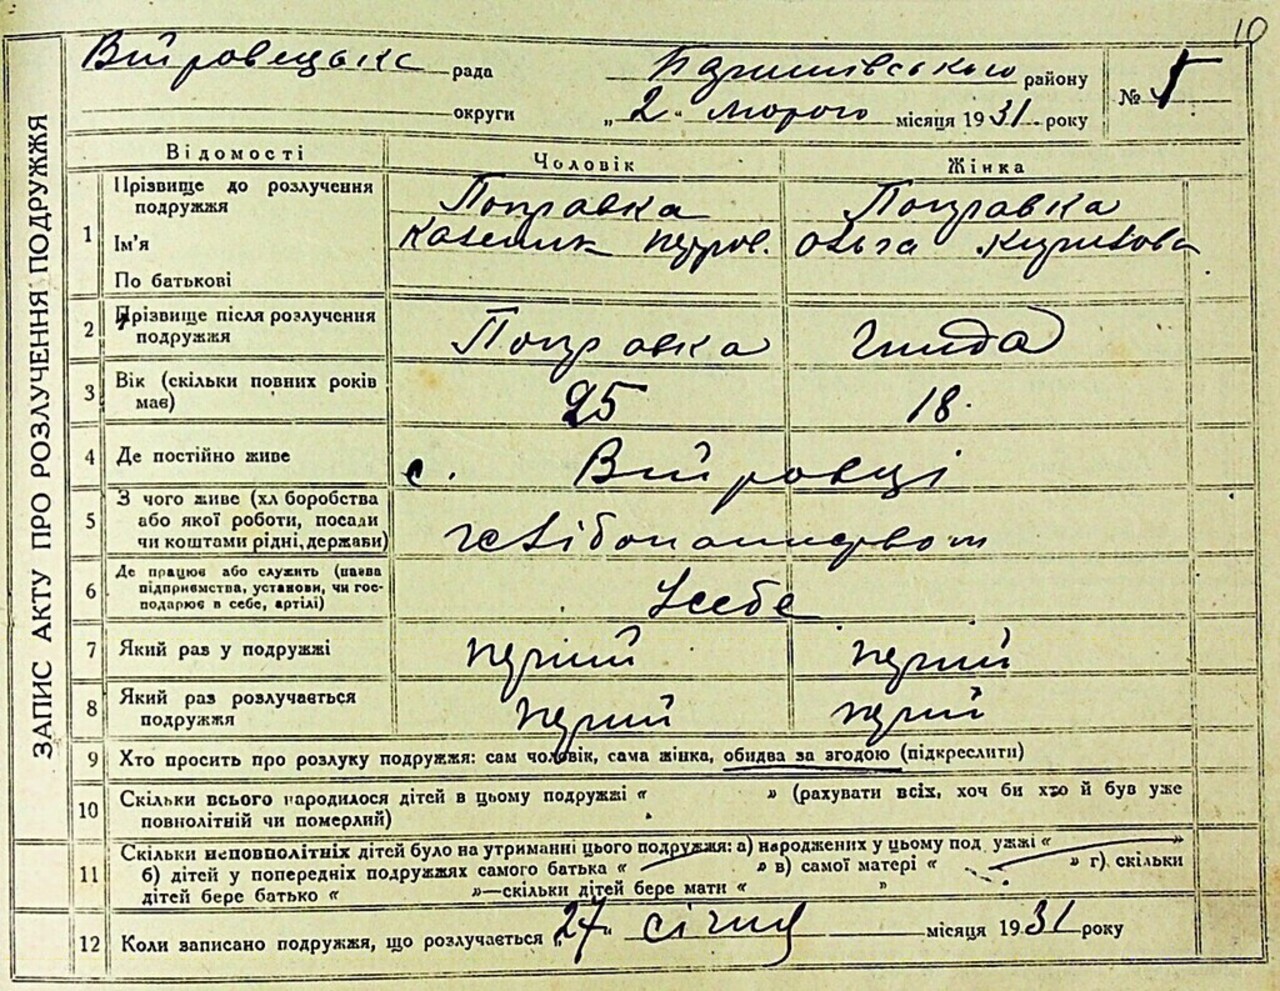 10
Війровецька рада района району № 5
округи „2“ лютого місяця 1931 року
ЗАПИС АКТУ ПРО РОЗЛУЧЕННЯ ПОДРУЖЖЯ
Відомості Чоловік Жінка
1 Прізвище до розлучення подружжя Поправка Поправка
Ім'я Петров. Ольга
По батькові
2 Прізвище після розлучення подружжя Поправка Гнида
3 Вік (скільки повних років має) 25 18.
4 Де постійно живе с. Війровці
5 З чого живе (хл боробства
або якої роботи, посади
чи коштами рідні, держави) хлібопашеством
6 Де працює або служить (назва
підприємства, установи, чи гос-
подарює в себе, артілі) У себе
7 Який раз у подружжі перший перший
8 Який раз розлучається
подружжя перший перший
9 Хто просить про розлуку подружжя: сам чоловік, сама жінка, обидва за згодою (підкреслити)
10 Скільки всього народилося дітей в цьому подружжі « » (рахувати всіх, хоч би хто й був уже
повнолітній чи померлий)
11 Скільки неповнолітніх дітей було на утриманні цього подружжя: а) народжених у цьому под ужжі « »
б) дітей у попередніх подружжях самого батька « » в) самої матері « » г) скільки
дітей бере батько « »—скільки дітей бере мати « »
12 Коли записано подружжя, що розлучається „27“ січня місяця 1931 року